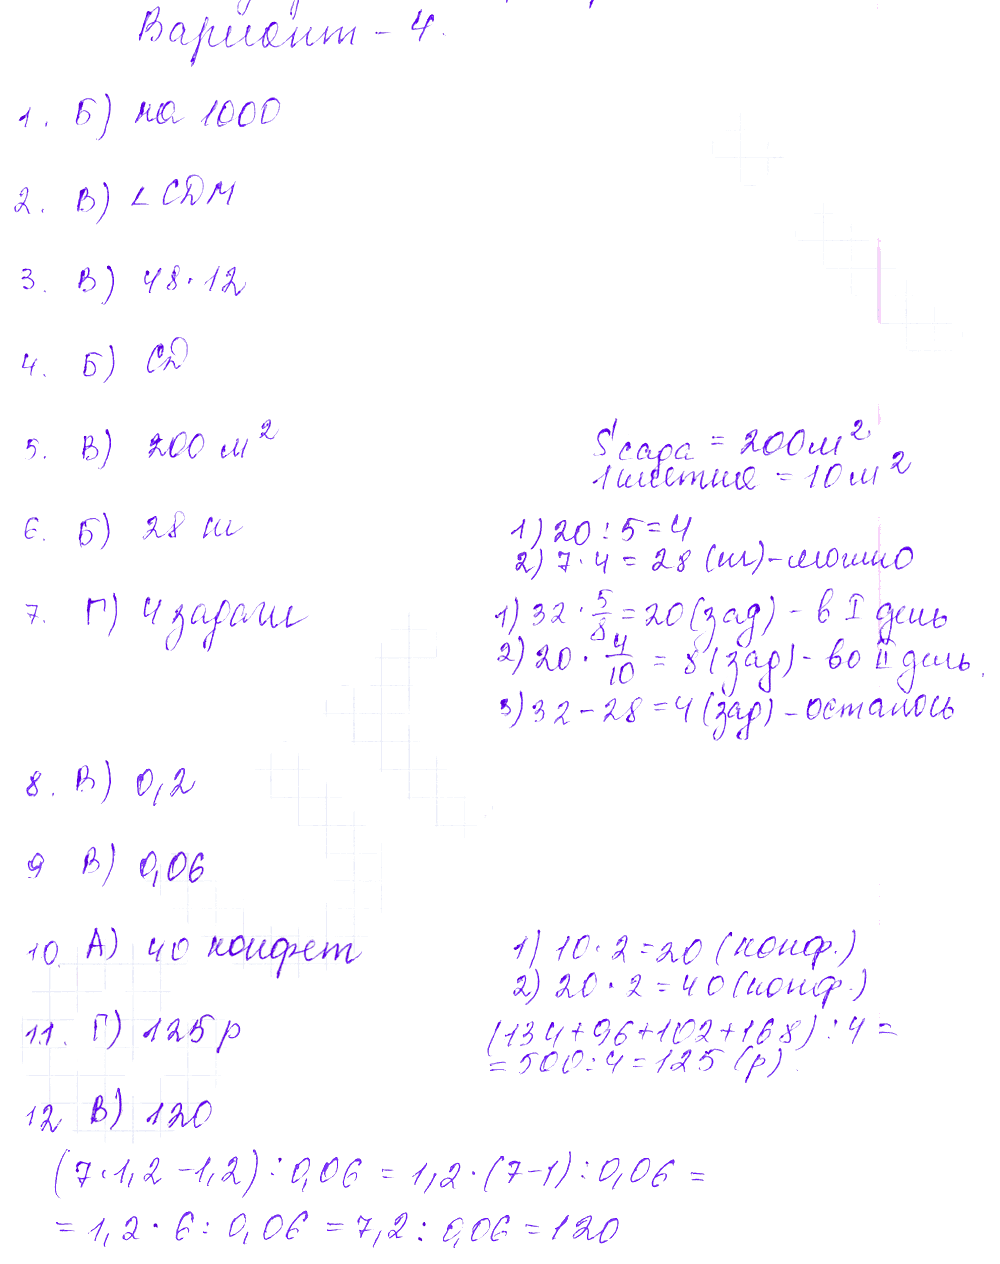 Вариант - 4.
1. Б) на 1000
2. В) ∠ CDM
3. В) 48 · 12
4. Б) CD
5. В) 200 м²
S сада = 200 м²
= 10 м²
6. Б) 28 ш
1) 20 : 5 = 4
2) 7 · 4 = 28 (ш) - можно
7. Г) 4 задачи
1) 32 · 5/8 = 20 (зад) - в I день
2) 20 · 4/10 = 8 (зад) - во II день.
3) 32 - 28 = 4 (зад) - осталось
8. В) 0,2
9 В) 0,06
10. А) 40 конфет
1) 10 · 2 = 20 (конф.)
2) 20 · 2 = 40 (конф.)
11. Г) 125 р
(134 + 96 + 102 + 168) : 4 =
= 500 : 4 = 125 (р)
12 В) 120
(7 · 1,2 - 1,2) : 0,06 = 1,2 · (7 - 1) : 0,06 =
= 1,2 · 6 : 0,06 = 7,2 : 0,06 = 120